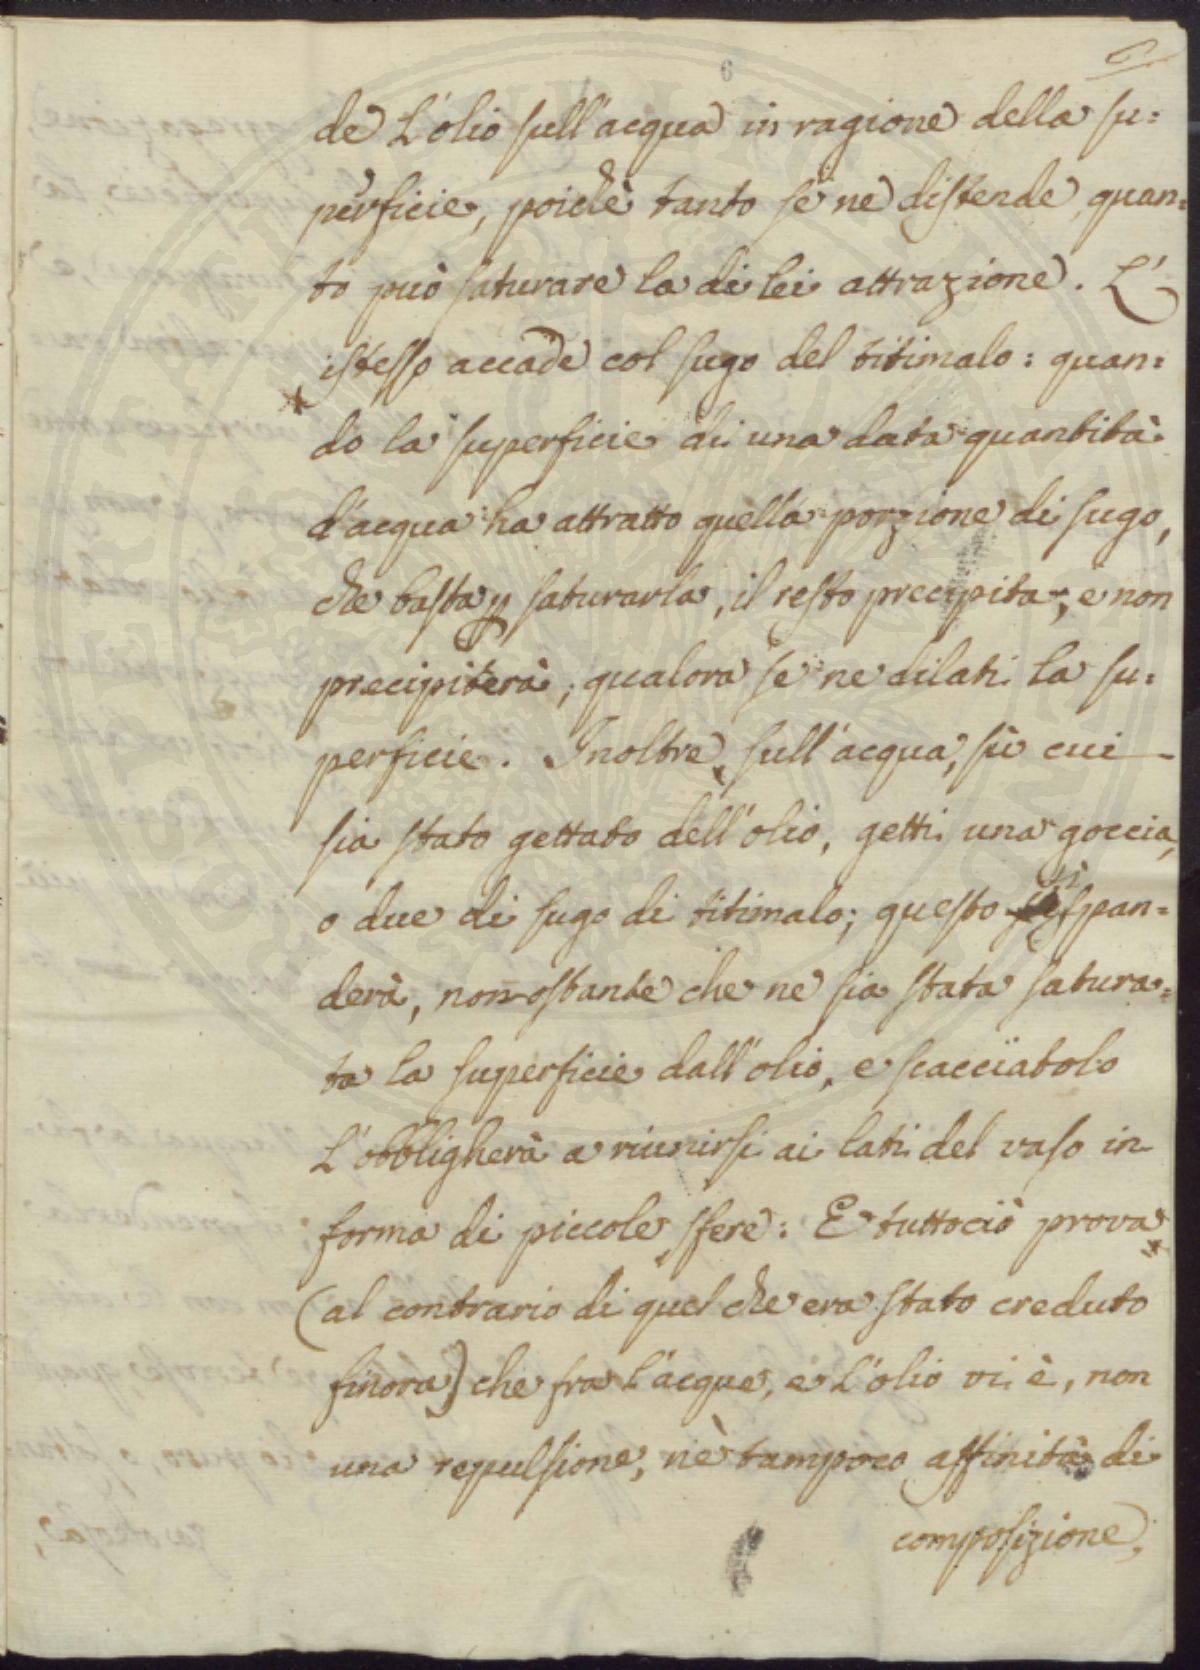 6
de L'olio sull'acqua in ragione della su=
perficie, poichè tanto se ne distende, quan=
to può saturare la di lei attrazione. L'
istesso accade col sugo del titimalo: quan=
do la superficie di una data quantità
d'acqua ha attratto quella porzione di sugo,
che basta p saturarla, il resto precipita, e non
precipiterà, qualora se ne dilati la su=
perficie. Inoltre, sull'acqua, sù cui
sia stato gettato dell'olio, getti una goccia,
o due di sugo di titimalo; questo si span=
derà, non ostante che ne sia stata satura=
ta la superficie dall'olio, e scacciatolo
L'obbligherà a riunirsi ai lati del vaso in
forma di piccole sfere: E tuttociò prova
(al contrario di quel che era stato creduto
finora) che fra l'acque, e L'olio vi è, non
una repulsione, nè tampoco affinità di
composizione,